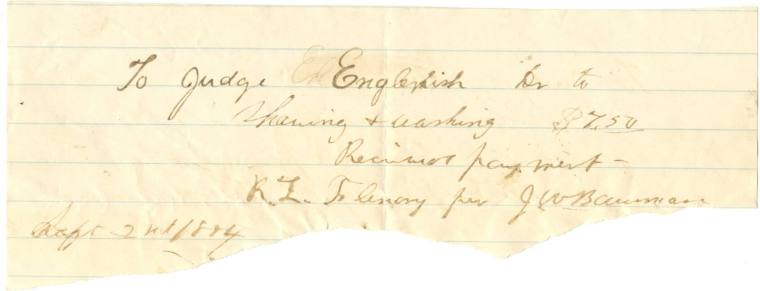 To Judge English Dr to
Shaving & washing $7.50
Recieved payment -
R.L. per J W Bauman
Sept 2nd 1884